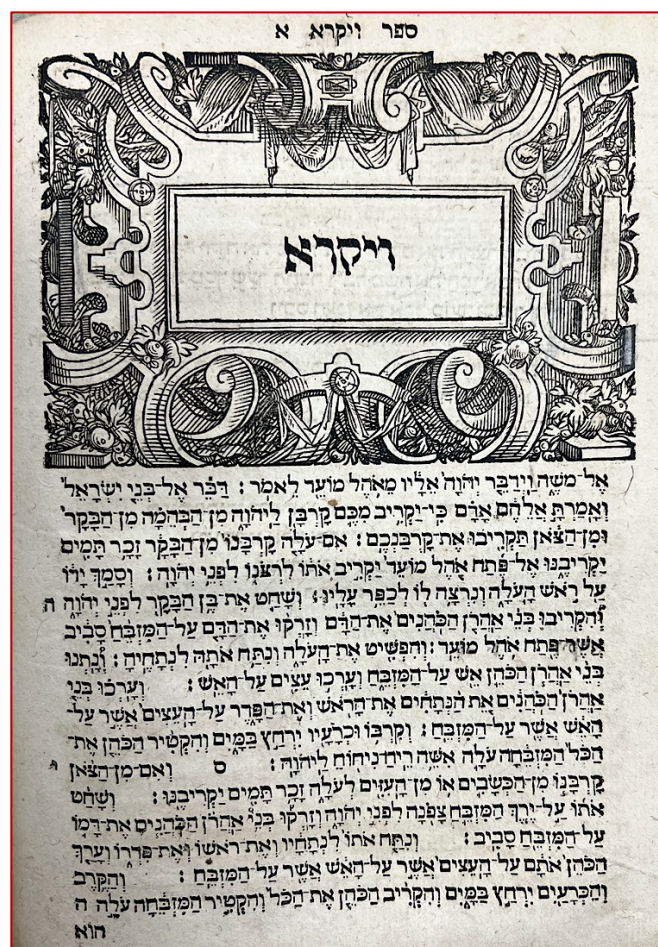 ספר ויקרא א
ויקרא
אֶל־מֹשֶׁה וַיְדַבֵּר יְהוָה אֵלָיו מֵאֹהֶל מוֹעֵד לֵאמֹר : דַּבֵּר אֶל־בְּנֵי יִשְׂרָאֵל
וְאָמַרְתָּ אֲלֵהֶם אָדָם כִּי־יַקְרִיב מִכֶּם קָרְבָּן לַיהוָה מִן־הַבְּהֵמָה מִן־הַבָּקָר
וּמִן־הַצֹּאן תַּקְרִיבוּ אֶת־קָרְבַּנְכֶם : אִם־עֹלָה קָרְבָּנוֹ מִן־הַבָּקָר זָכָר תָּמִים
יַקְרִיבֶנּוּ אֶל־פֶּתַח אֹהֶל מוֹעֵד יַקְרִיב אֹתוֹ לִרְצֹנוֹ לִפְנֵי יְהוָה : וְסָמַךְ יָדוֹ
עַל רֹאשׁ הָעֹלָה וְנִרְצָה לוֹ לְכַפֵּר עָלָיו : וְשָׁחַט אֶת־בֶּן הַבָּקָר לִפְנֵי יְהוָה ה
וְהִקְרִיבוּ בְּנֵי אַהֲרֹן הַכֹּהֲנִים אֶת־הַדָּם וְזָרְקוּ אֶת־הַדָּם עַל־הַמִּזְבֵּחַ סָבִיב
אֲשֶׁר־פֶּתַח אֹהֶל מוֹעֵד : וְהִפְשִׁיט אֶת־הָעֹלָה וְנִתַּח אֹתָהּ לִנְתָחֶיהָ : וְנָתְנוּ
בְּנֵי אַהֲרֹן הַכֹּהֵן אֵשׁ עַל־הַמִּזְבֵּחַ וְעָרְכוּ עֵצִים עַל־הָאֵשׁ : וְעָרְכוּ בְּנֵי
אַהֲרֹן הַכֹּהֲנִים אֵת הַנְּתָחִים אֶת־הָרֹאשׁ וְאֶת־הַפָּדֶר עַל־הָעֵצִים אֲשֶׁר עַל־
הָאֵשׁ אֲשֶׁר עַל־הַמִּזְבֵּחַ : וְקִרְבּוֹ וּכְרָעָיו יִרְחַץ בַּמָּיִם וְהִקְטִיר הַכֹּהֵן אֶת־
הַכֹּל הַמִּזְבֵּחָה עֹלָה אִשֵּׁה רֵיחַ־נִיחוֹחַ לַיהוָה : ס וְאִם־מִן־הַצֹּאן י
קָרְבָּנוֹ מִן־הַכְּשָׂבִים אוֹ מִן־הָעִזִּים לְעֹלָה זָכָר תָּמִים יַקְרִיבֶנּוּ : וְשָׁחַט
אֹתוֹ עַל־יֶרֶךְ הַמִּזְבֵּחַ צָפֹנָה לִפְנֵי יְהוָה וְזָרְקוּ בְּנֵי אַהֲרֹן הַכֹּהֲנִים אֶת־דָּמוֹ
עַל־הַמִּזְבֵּחַ סָבִיב : וְנִתַּח אֹתוֹ לִנְתָחָיו וְאֶת־רֹאשׁוֹ וְאֶת־פִּדְרוֹ וְעָרַךְ
הַכֹּהֵן אֹתָם עַל־הָעֵצִים אֲשֶׁר עַל־הָאֵשׁ אֲשֶׁר עַל־הַמִּזְבֵּחַ : וְהַקֶּרֶב
וְהַכְּרָעַיִם יִרְחַץ בַּמָּיִם וְהִקְרִיב הַכֹּהֵן אֶת הַכֹּל וְהִקְטִיר הַמִּזְבֵּחָה עֹלָה ה
הוּא